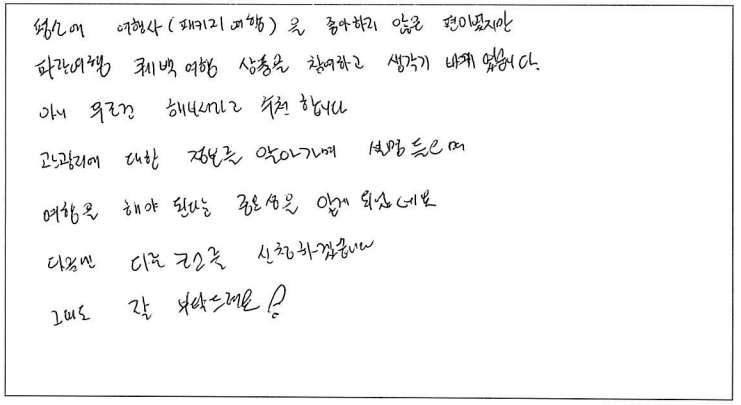 평소에 여행사(패키지 여행)을 좋아하지 않은 편이였지만
파란여행 퀘백여행 상품을 참여하고 생각기 바뀌었습니다.
아니 무조건 해보시라고 추천 합니다
관광지에 대한 정보를 알아가며 설명 들으며
여행을 해야 된다는 중요성을 알게 되었네요
다음엔 다른 코스를 신청하겠습니다
그때도 잘 부탁드려요!